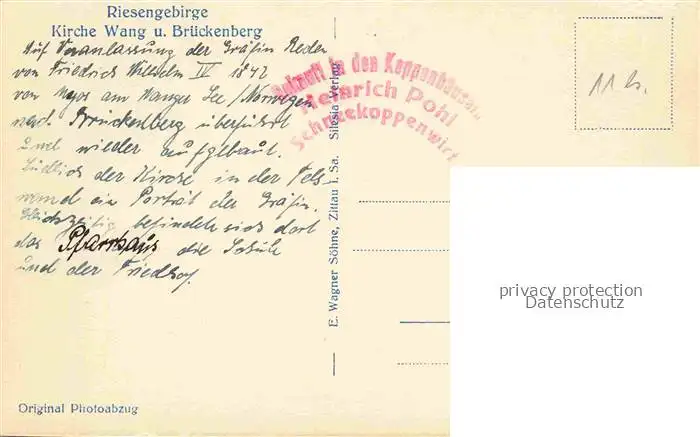 Riesengebirge
Kirche Wang u. Brückenberg
Auf Veranlassung der Gräfin Reden
von Friedrich Wilhelm IV 1842
von am Wanger See/Norwegen
nach Brückenberg überführt
und wieder aufgebaut.
Südlich der Kirche in der Fels-
wand ein Porträt der Gräfin.
Gleichzeitig befinden sich dort
das Pfarrhaus die Schule
und der Friedhof.
Original Photoabzug
E. Wagner Söhne, Zittau i. Sa. Silesia Verlag
in den Koppenhäusern
Heinrich Pohl
Schneekoppenwirt
11
privacy protection
Datenschutz